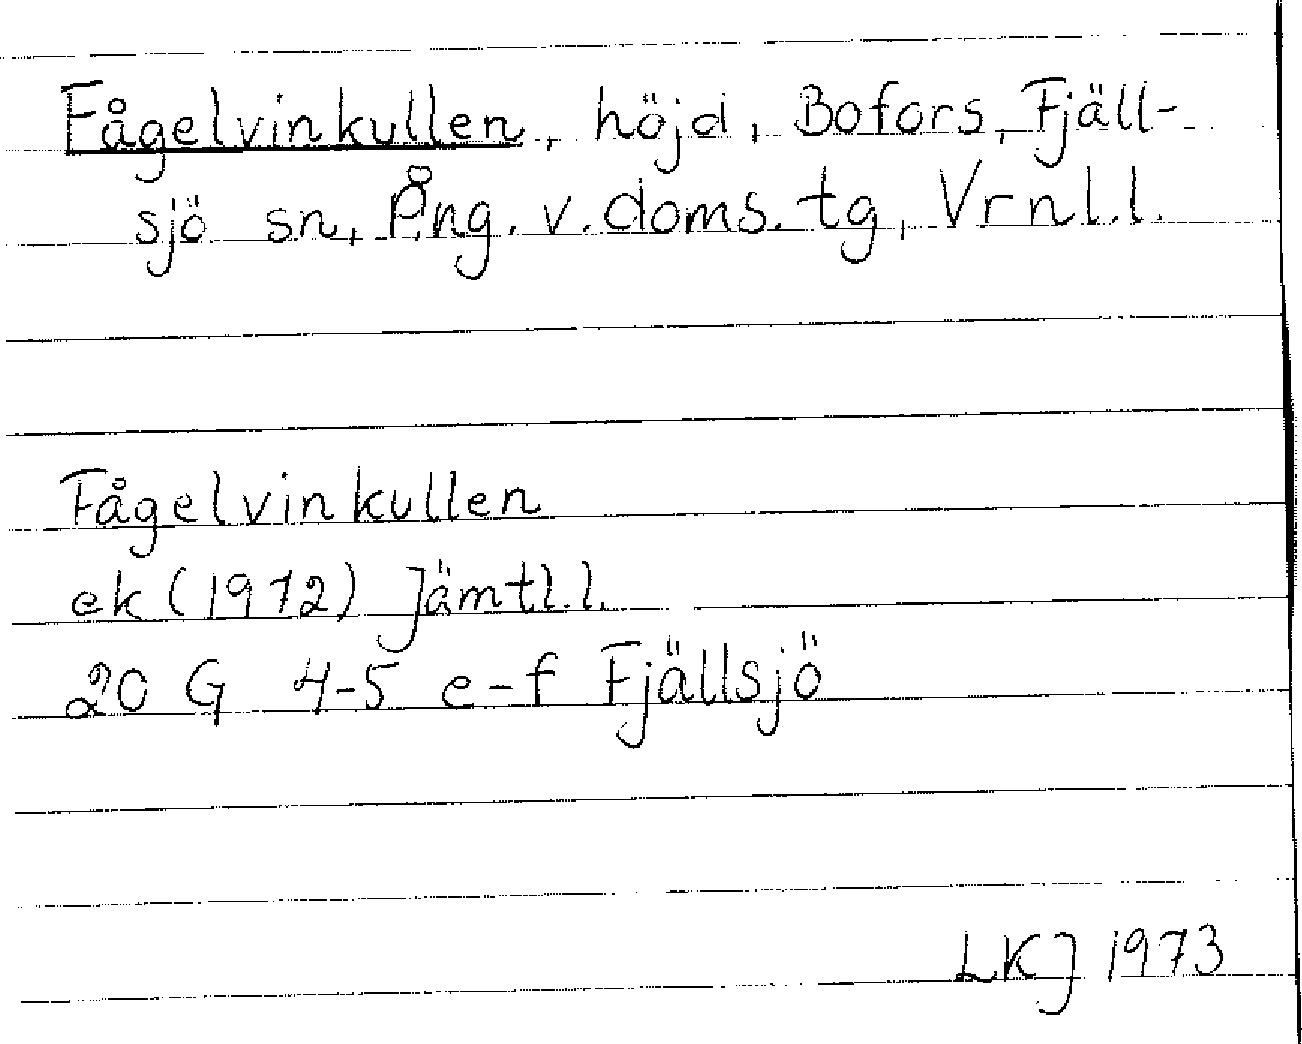 Fågelvinkullen, höjd, Bofors, Fjäll-
sjö sn, Ång. v. doms. tg, Vrnl.l.
Fågelvinkullen
ek (1972) Jämtl.l.
20 G 4-5 e-f Fjällsjö
LKJ 1973